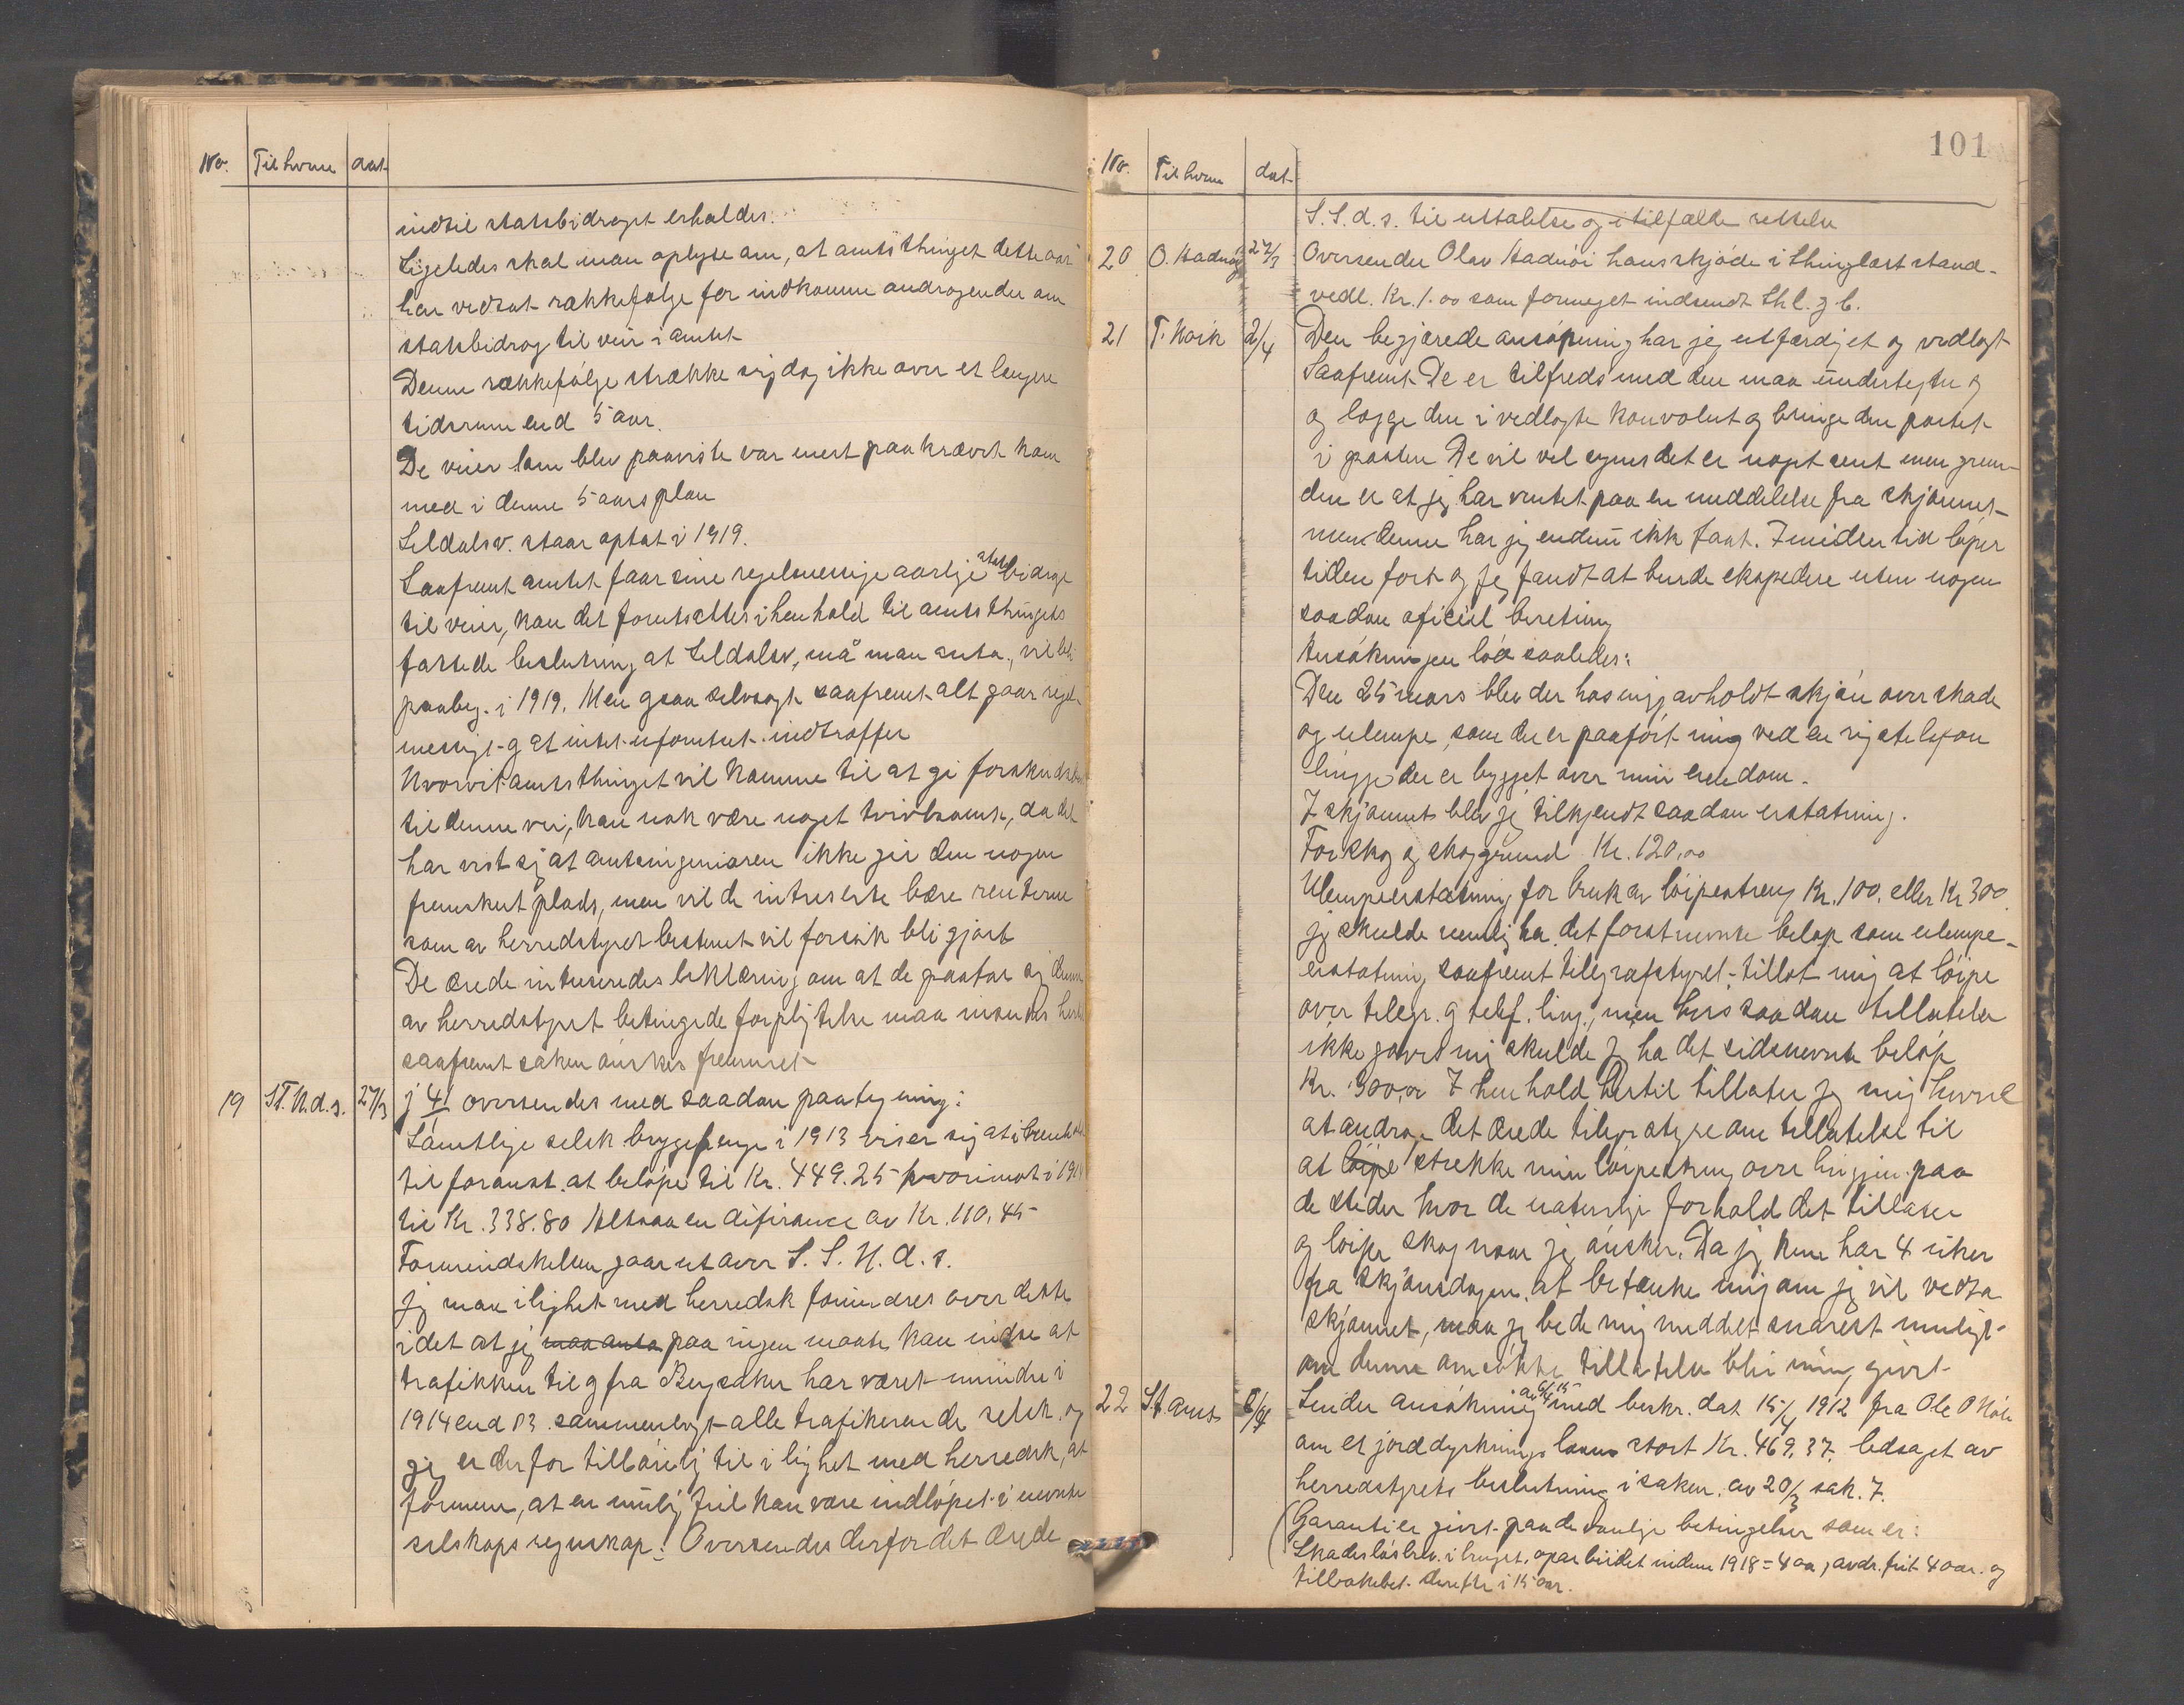 No. Til hvem dat
indtil statsbidraget erholdes.
Ligeledes skal man oplyse om, at amtsthinget dette aar
har vedtat rækkefølge for indkomne andragender om
statsbidrag til veir i amtet
Denne rækkefølge strække sig dog ikke over et længere
tidsrum end 5 aar.
De veier som blev paaviste var mest paakrævet kom
med i denne 5 aars plan
Seldalsv. staar optat i 1919.
Saafremt amtet faar sine regelmessige aarlje stats bidrage
til veier, kan det forutsættes i henhold til amtsthingets
fattede beslutning at Seldalsv, må man anta, vil bli
paabeg. i 1919. Men gsaa selvsagt saafremt alt gaar regel-
messigt g at intet uforutset indtræffer
Hvorvit amtsthinget vil komme til at gi forskudsbi
til denne vei, kan nok være noget tvivlsomt, da det
har vist sj at amtsingeniøren ikke gir den nogen
fremskut plads, men vil de intreserte bære renterne
som av herredstyret bestemt vil forsøk bli gjort
De ærede intereseredes erklæring om at de paatar sj denne
av herredstyret betingede forpligtelse maa insendes hertil
saafremt saken ønskes fremmet
19 St. N. d. s. 27/3 j 4/ oversendes med saadan paategning:
Samtlige selsk. bryggepenge i 1913 viser sig at i henhold
til foranst. at beløpe til Kr. 449.25 hvorimot i 1914
til Kr. 338.80 Altsaa en difirance av Kr. 110,45
Formindskelsen gaar ut over S. S. N. d. s.
Jg maa i lighet med herredsk forundres over dette
idet at jeg maa anta paa ingen maate kan indse at
trafikken til g fra Bergsaker har været mindre i
1914 end 13 sammenlagt alle trafikerende selsk. og
jeg er derfor tilbøielig til i lighet med herredsk, at
formene, at en mulig feil kan være indløpet i nevnte
selskaps regnskap. Oversendes derfor det ærede
101
No. Til hvem dat
S. S. d. s. til uttalelse og i tilfælde rettelse
20 O. Hadnöj 27/3 Oversender Olav Hadnöi hans skjøde i thinglæst stand-
vedl. Kr. 1.00 som formeget indsendt thl. g b.
21 T. Koik 2/4 Den begjærede ansøgning har jeg utfærdjet og vedlagt
Saafremt De er tilfreds med den maa undertegne og
og lægge den i vedlagte konvolut og bringe den postet
i posten De vil vel synes det er noget sent men grun-
den er at jeg har ventet paa en meddelelse fra skjønnet
men denne har jeg endnu ikk faat. Imidlertid løper
tiden fort og jeg fandt at burde ekspedere uten nogen
saadan oficiel beretning
Ansøkningen lød saaledes:
Den 25 mars blev der hos mig avholdt skjøn over skade
og ulempe, som der er paaført mig ved en rigstelefon
linje der er bygget over min eiendom.
I skjønnet blev jg tilkjendt saadan erstatning.
For skog og skoggrund Kr. 120,00
Ulempeerstatning for bruk av løipestreng Kr. 100. eller Kr 300.
jg skulde nemlig ha det førstnevnte beløp som ulempe-
erstatning saafremt telegrafstyret tillot mig at løipe
over telegr. g telef. linj., men hvis saadan tillatelse
ikke gaves mig skulde jg ha det sidsnevnte beløp
Kr. 300,00 I henhold hertil tillater jg mig herved
at andrage det ærede telegrafstyre om tillatelse til
at løipe strekke min løipestreng over linjen paa
de steder hvor de naturlige forhold det tillater
og løipe skog naar jeg ønsker. Da jg kun har 4 uker
fra skjønsdagen at betænke mig om jeg vil vedta
skjønnet, maa jg be de mig meddelt snarest muligt
om denne omsøkte tillatelse blir mig givet
22 St. amt 8/4 Sender ansøkning av 6/4 15 med beskr. dat 15/4 1912 fra Ole O
om et jorddyrknings laan stort Kr. 469,37. ledsaget av
herredstyrets beslutning i saken. av 20/3 sak. 7.
(Garanti er givet paa de vanlige betingelser som er:
Skadesløsbrev. i bruget, oparbeidet inden 1918 = 4 aa, avdr. frit 4 aar. og
tilbakebet. derefter i 15 aar.